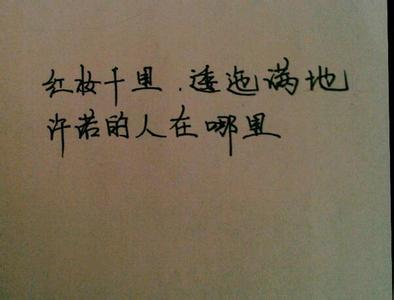 红妆千里.逶迤满地
许若的人在哪里